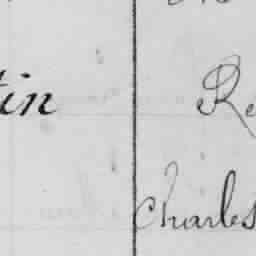 tin Re
Charles